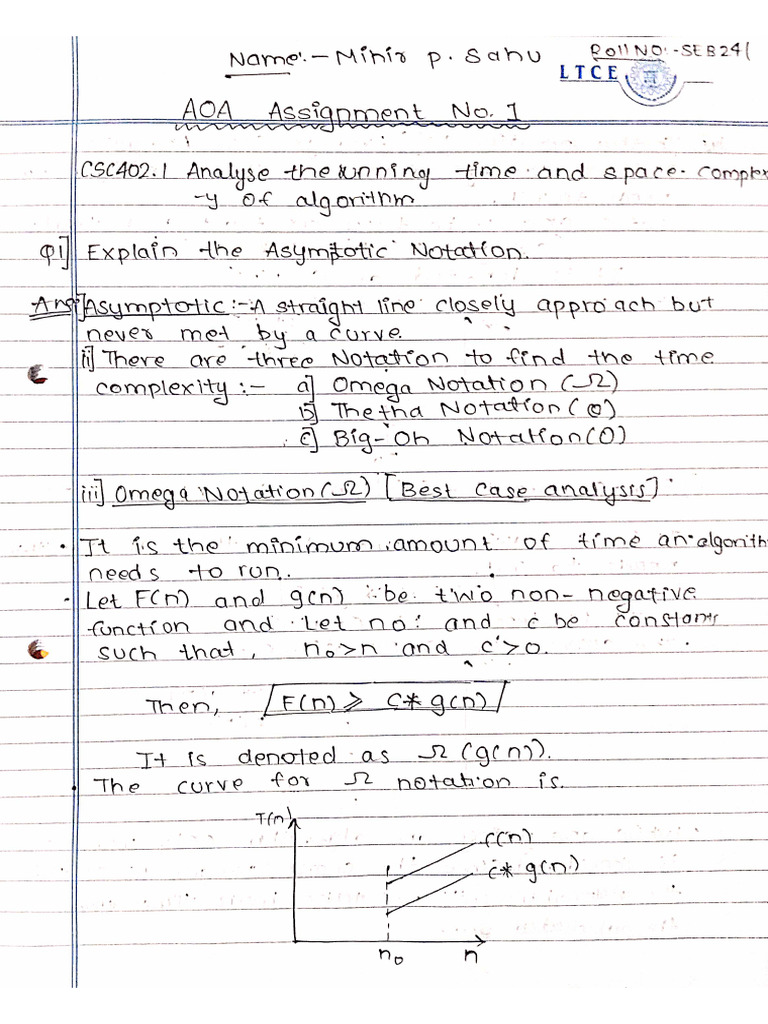 Name:- Mihir p. Sahu
Roll NO:-SEB241
LTCE
AOA Assignment No. 1
CSC402.1 Analyse the running time and space complex
-y of algorithm
Q1] Explain the Asymptotic Notation.
Ans i] Asymptotic:- A straight line closely approach but
never met by a curve.
ii] There are three Notation to find the time
complexity :- a] Omega Notation (Ω)
b] Thetha Notation (θ)
c] Big-Oh Notation (O)
iii] Omega Notation (Ω) [Best Case analysis]
• It is the minimum amount of time an algorithm
needs to run.
• Let F(n) and g(n) be two non-negative
function and Let no and c be constants
such that, n₀>n and c>0.
Then, F(n) ≥ C* g(n)
It is denoted as Ω (g(n)).
• The curve for Ω notation is.
T(n)
f(n)
c* g(n)
n₀ n